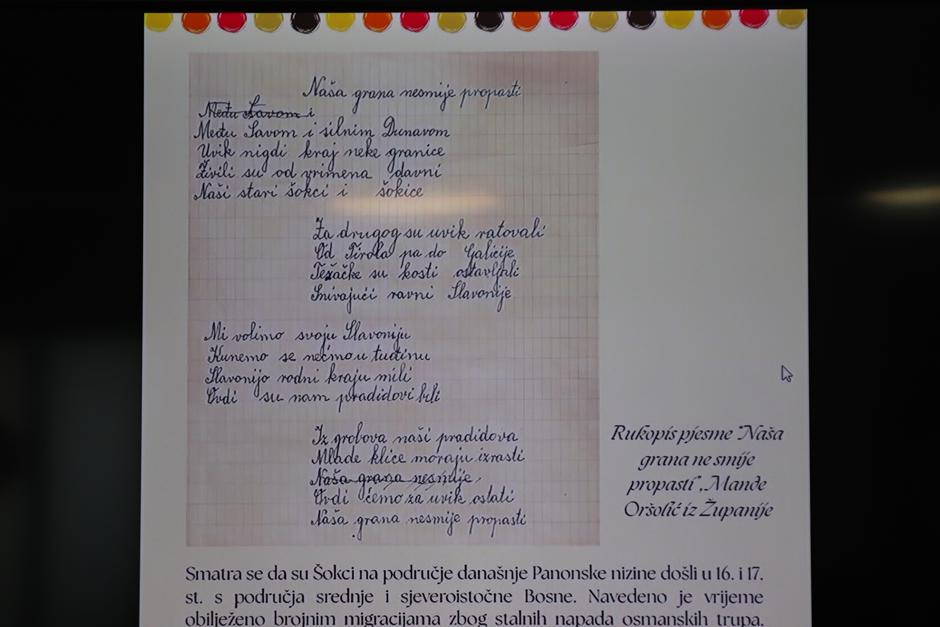 Naša grana nesmije propasti
Među Savom i
Među Savom i silnim Dunavom
Uvik nigdi kraj neke granice
Živili su od vrimena davni
Naši stari šokci i šokice
Za drugog su uvik ratovali
Od Tirola pa do Galicije
Težačke su kosti ostavljali
Snivajući ravni Slavonije
Mi volimo svoju Slavoniju
Kunemo se nećmo u tuđinu
Slavonijo rodni kraju mili
Ovdi su nam pradidovi bili
Iz grobova naši pradidova
Mlade klice moraju izrasti
Naša grana nesmije
Ovdi ćemo za uvik ostati
Naša grana nesmije propasti
Rukopis pjesme "Naša
grana ne smije
propasti", Manđe
Oršolić iz Županije
Smatra se da su Šokci na područje današnje Panonske nizine došli u 16. i 17.
st. s područja srednje i sjeveroistočne Bosne. Navedeno je vrijeme
obilježeno brojnim migracijama zbog stalnih napada osmanskih trupa.